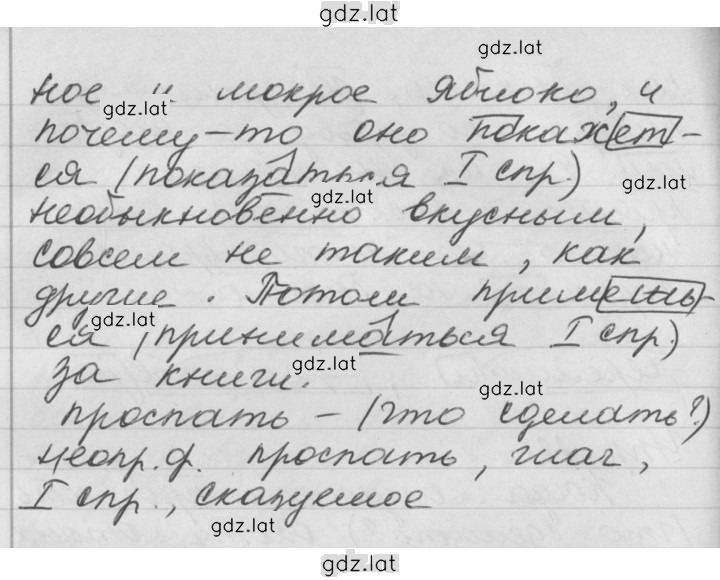 gdz.lat
gdz.lat
ное и мокрое яблоко, и
gdz.lat
почему-то оно покажет-
ся (показаться I спр.)
gdz.lat
gdz.lat
необыкновенно вкусным,
совсем не таким, как
другие. Потом примешь-
gdz.lat
ся (приниматься I спр.)
gdz.lat
за книги.
gdz.lat
проспать – (что сделать?)
неопр.ф. проспать, глаг,
I спр., сказуемое
gdz.lat
gdz.lat